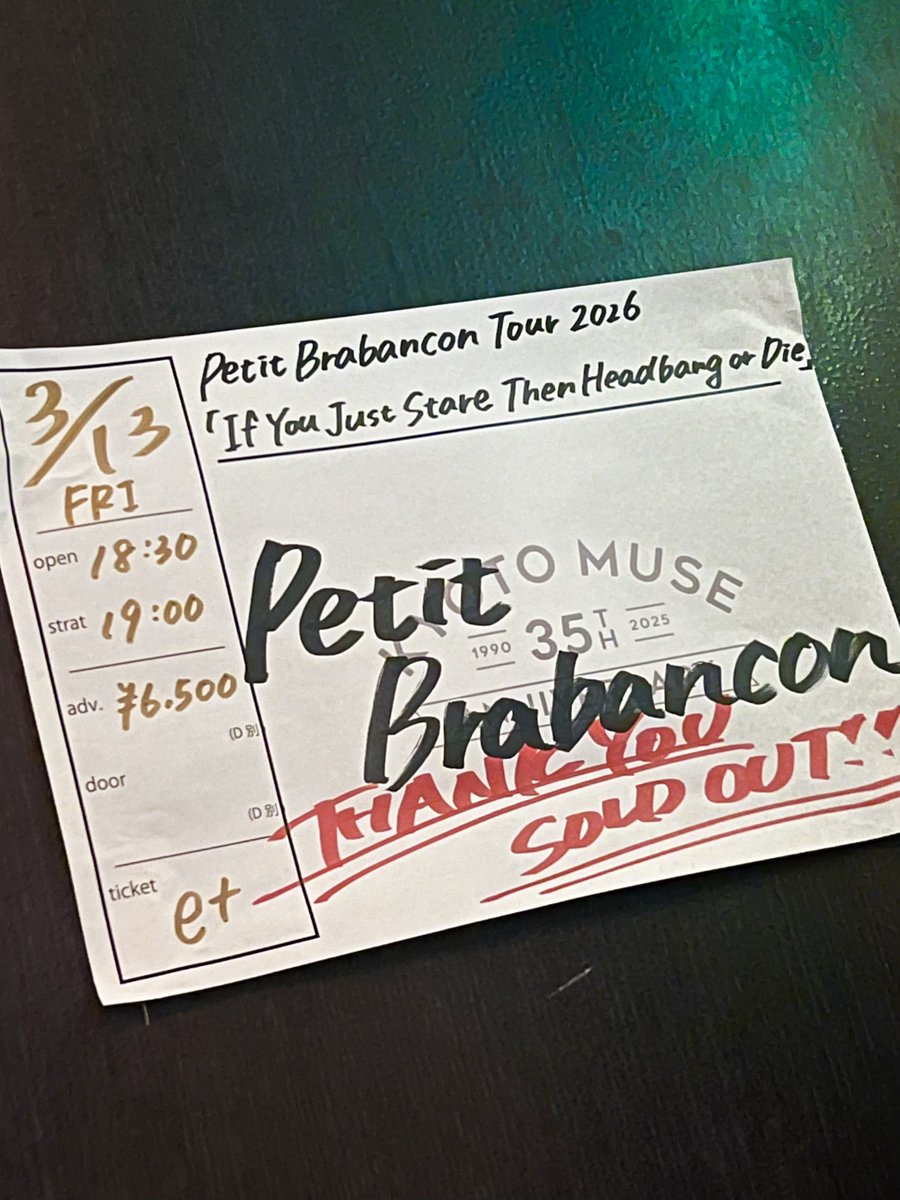 3/13
FRI
open 18:30
strat 19:00
adv. ¥6.500
(D別
door
(D別
ticket
e+
Petit Brabancon Tour 2026
「If You Just Stare Then Headbang or Die」
KYOTO MUSE
1990 35TH 2025
Petit
Brabancon
THANK YOU
SOLD OUT!!